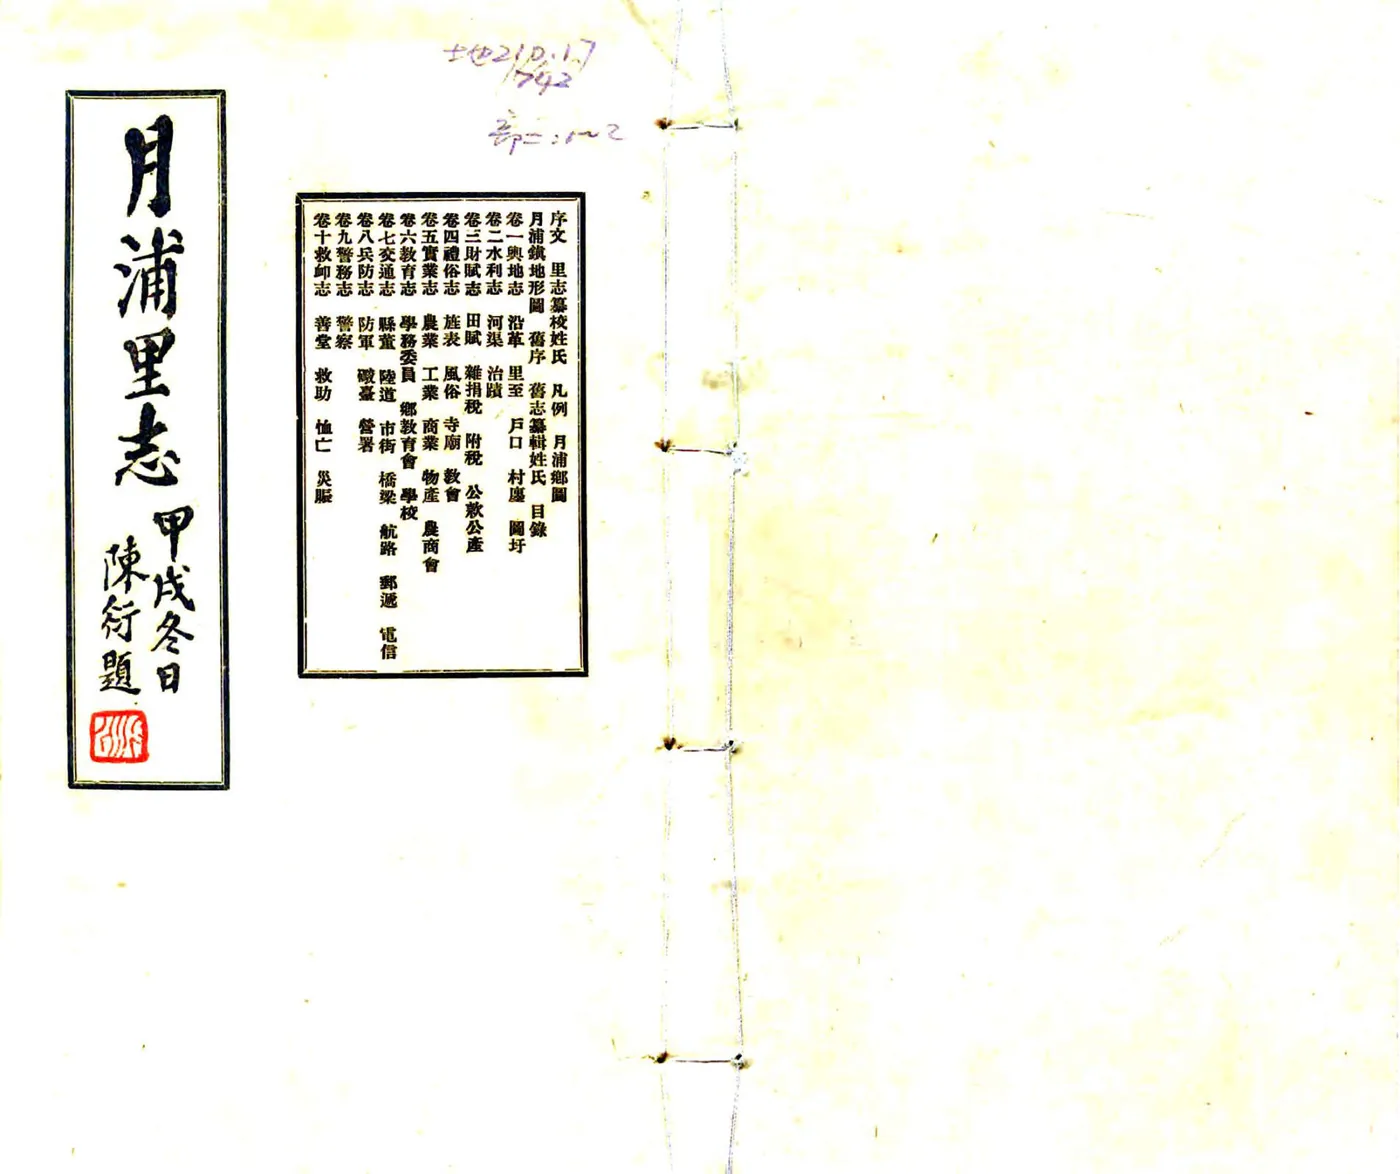 土也210.1.7
742
部二:1~2
序文 里志纂校姓氏 凡例 月浦鄉圖
月浦鎮地形圖 舊序 舊志纂輯姓氏 目錄
卷一輿地志 沿革 里至 戶口 村廛 圖圩
卷二水利志 河渠 治蹟
卷三財賦志 田賦 雜捐稅 附稅 公款公產
卷四禮俗志 旌表 風俗 寺廟 教會
卷五實業志 農業 工業 商業 物產 農商會
卷六教育志 學務委員 鄉教育會 學校
卷七交通志 縣董 陸道 市街 橋梁 航路 郵遞 電信
卷八兵防志 防軍 礮臺 營署
卷九警務志 警察
卷十救卹志 善堂 救助 恤亡 災賑
月浦里志
甲戌冬日
陳衍題